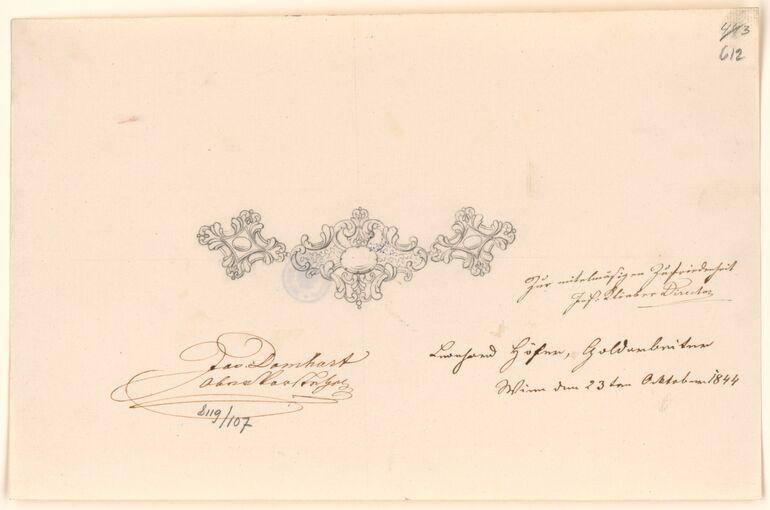 443
612
Zur mitelmäßigen Zufriedenheit
Jos. Klieber Director
Leonhard Höfer, Goldarbeiter
Wien den 23ten Oktober 1844
Domhart
8119/107